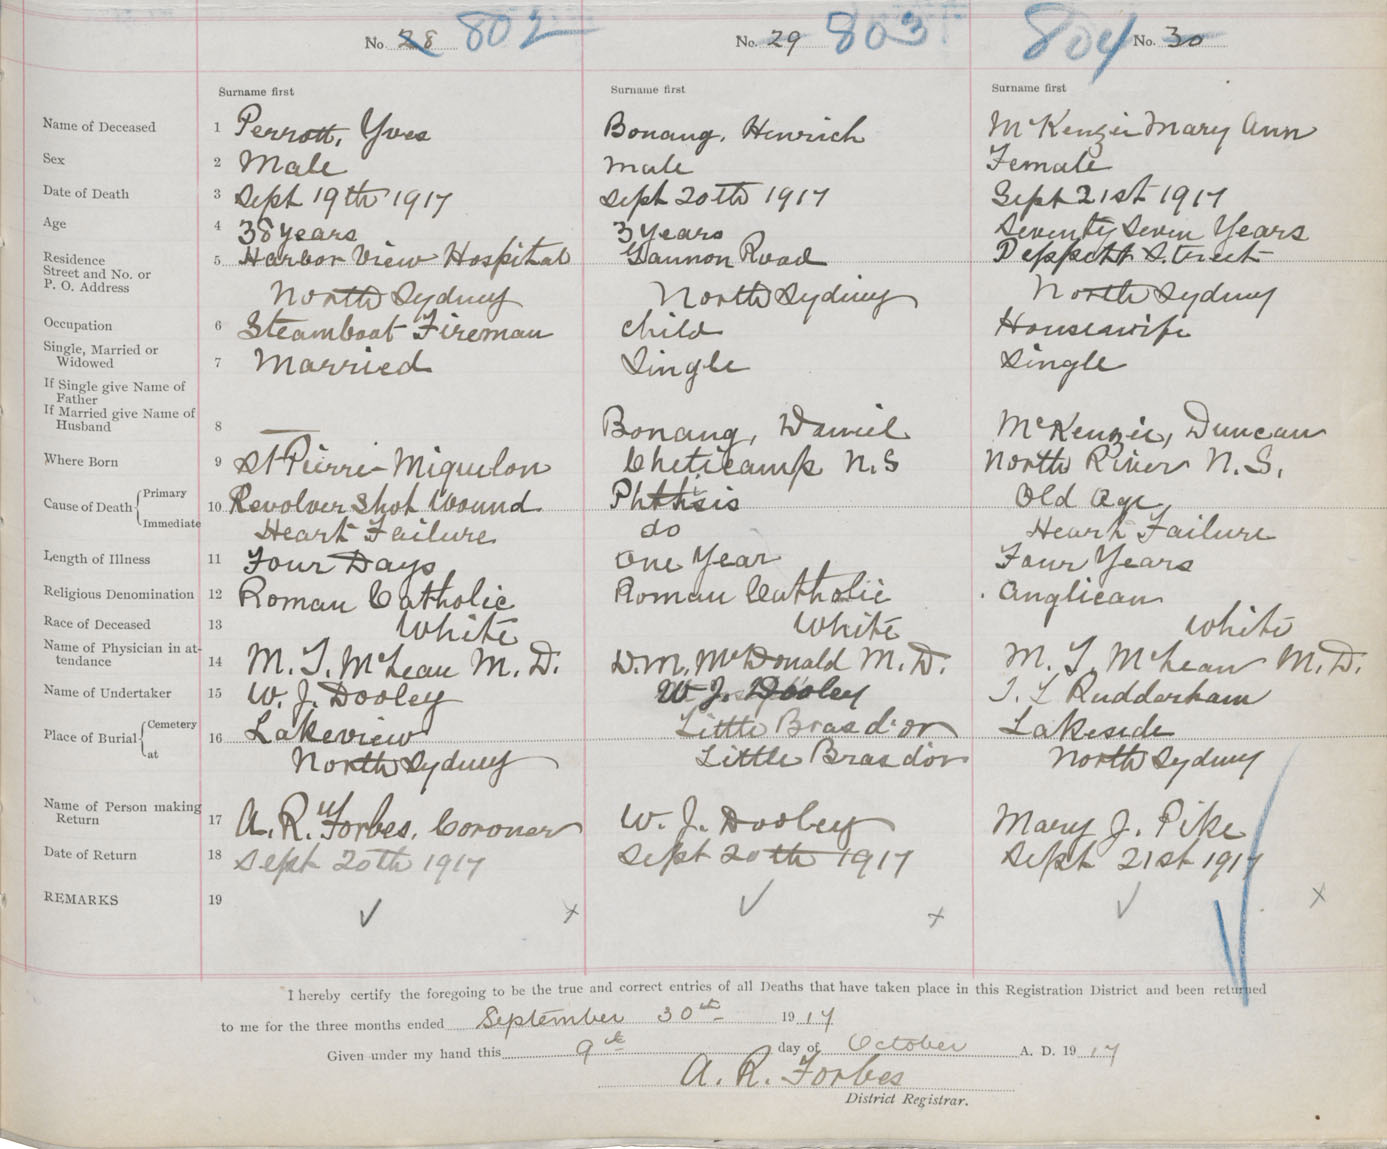 No. 28 802
No. 29 803
804 No. 30
Surname first Surname first Surname first
Name of Deceased 1 Perrott, Yves Bonang, Hinrich McKenzie Mary Ann
Sex 2 Male Male Female
Date of Death 3 Sept 19th 1917 Sept 20th 1917 Sept 21st 1917
Age 4 38 years 3 years Seventy Seven Years
Residence
Street and No. or
P. O. Address
5 Harbor View Hospital Gannon Road Peppett Street
North Sydney North Sydney North Sydney
Occupation 6 Steamboat Fireman Child Housewife
Single, Married or
Widowed 7 Married Single Single
If Single give Name of
Father
If Married give Name of
Husband 8 — Bonang, Daniel McKenzie, Duncan
Where Born 9 St Pierre-Miquelon Cheticamp N.S North River N.S.
Cause of Death { Primary 10 Revolver Shot Wound Phthsis Old Age
Immediate Heart Failure do Heart Failure
Length of Illness 11 Four Days One Year Four Years
Religious Denomination 12 Roman Catholic Roman Catholic Anglican
Race of Deceased 13 White White White
Name of Physician in at-
tendance 14 M. T. McLean M. D. D.M. McDonald M. D. M. T. McLean M. D.
Name of Undertaker 15 W. J. Dooley W. J. Dooley Rudderham
Place of Burial { Cemetery 16 Lakeview Little Brasd'or Lakeside
at North Sydney Little Brasd'or North Sydney
Name of Person making
Return 17 A. R. Forbes, Coroner W. J. Dooley Mary J. Pike
Date of Return 18 Sept 20th 1917 Sept 20th 1917 Sept 21st 1917
REMARKS 19
I hereby certify the foregoing to be the true and correct entries of all Deaths that have taken place in this Registration District and been returned
to me for the three months ended September 30th 1917
Given under my hand this 9th day of October A. D. 1917
A. R. Forbes
District Registrar.